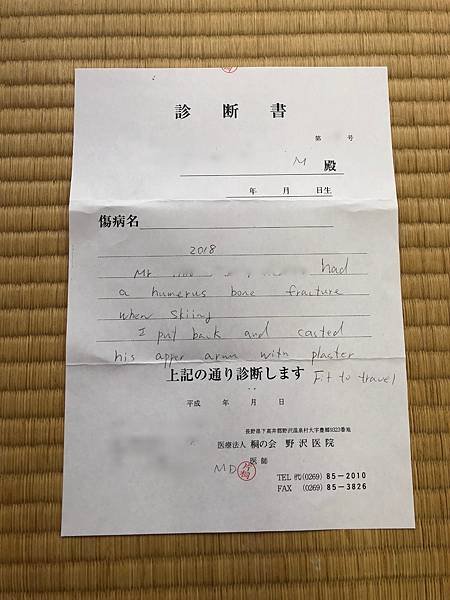 診断書
第 号
M 殿
年 月 日生
傷病名
2018
Mr had
a humerus bone fracture
when skiing
I put back and casted
his apper arm with plaster
上記の通り診断します Fit to travel
平成 年 月 日
長野県下高井郡野沢温泉村大字豊郷9322番地
医療法人 桐の会 野沢医院
MD 医師
TEL ㈹(0269) 85-2010
FAX (0269) 85-3826